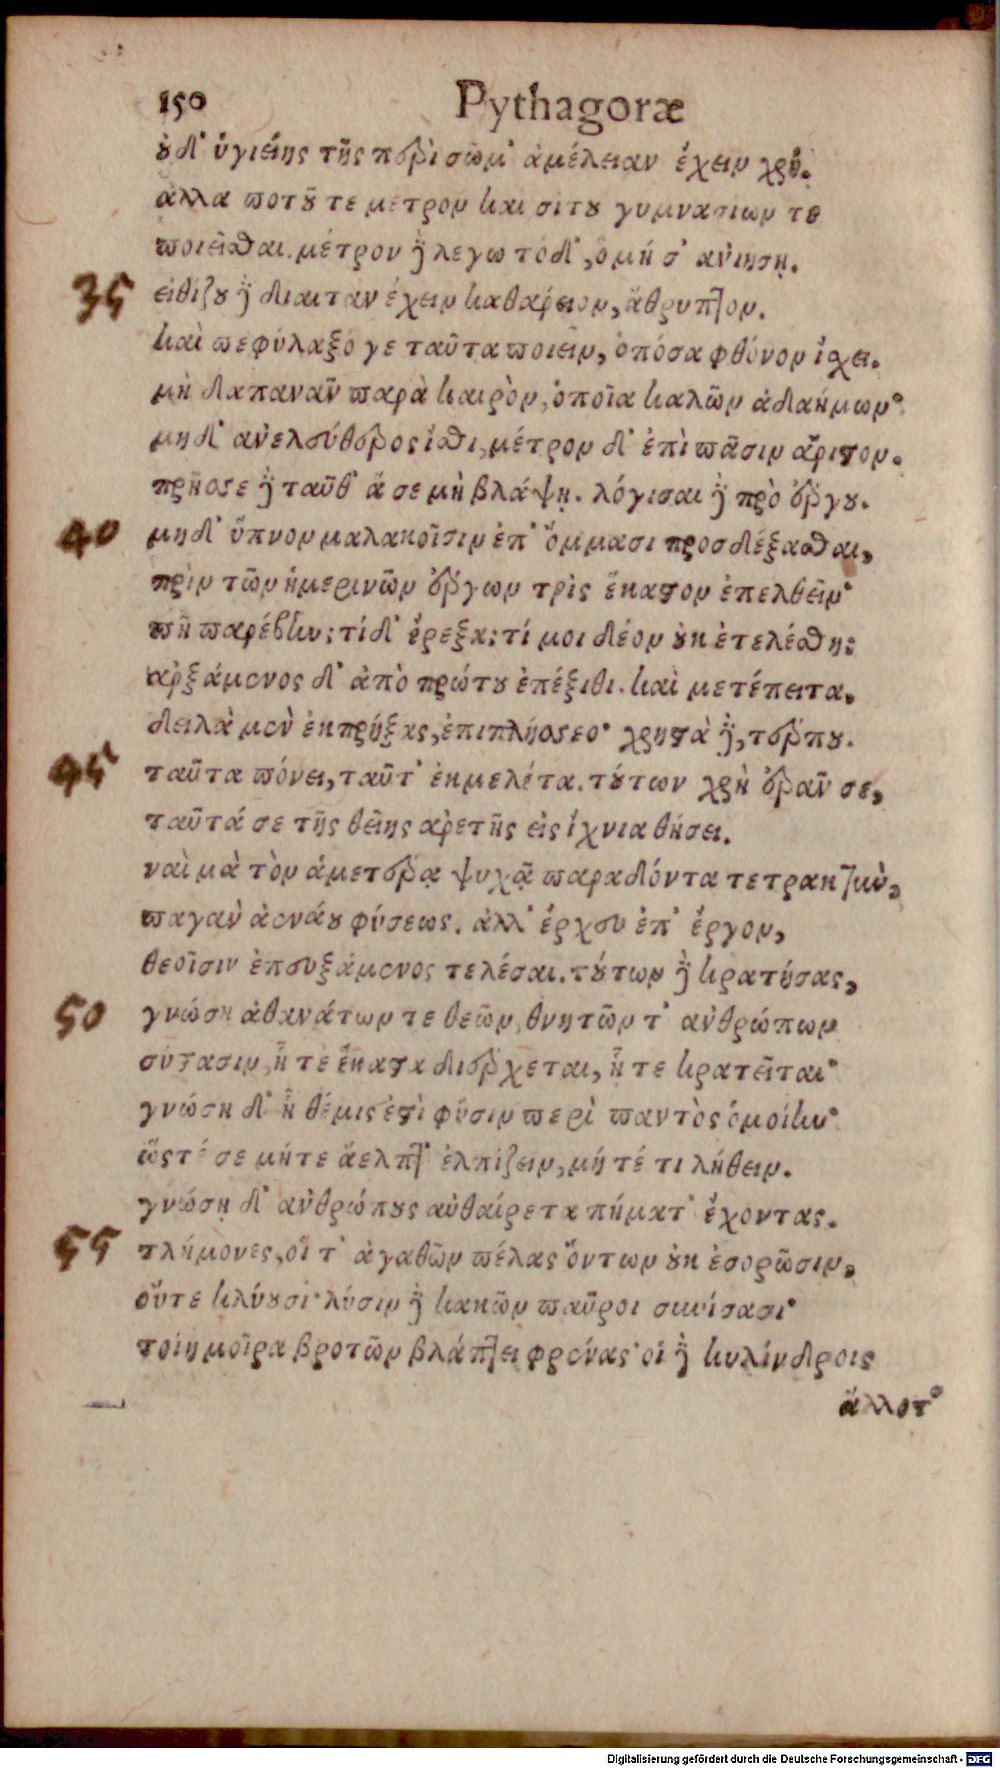 150 Pythagoræ
οὐδ' ὑγιείης τῆς περὶ σῶμ' ἀμέλειαν ἔχειν χρή.
ἀλλα ποτοῦ τε μετρον καὶ σιτου γυμνασιων τε
ποιεῖσθαι. μέτρον δὲ λεγω τόδ', ὁ μή σ' ἀνιησῃ.
35 εἰθίζου δὲ διαιταν ἔχειν καθαρειον, ἄθρυπτον.
καὶ πεφύλαξό γε ταῦτα ποιεῖν, ὁπόσα φθόνον ἴσχει.
μὴ δαπανᾶν παρὰ καιρὸν, ὁποῖα καλῶν ἀδαήμων·
μηδ' ἀνελεύθερος ἴσθι, μέτρον δ' ἐπὶ πᾶσιν ἄριστον.
πρῆσσε δὲ ταῦθ' ἅ σε μὴ βλάψῃ. λόγισαι δὲ πρὸ ἔργου.
40 μηδ' ὕπνον μαλακοῖσιν ἐπ' ὄμμασι προσδέξασθαι,
πρὶν τῶν ἡμερινῶν ἔργων τρὶς ἕκαστον ἐπελθεῖν·
πῆ παρέβην; τί δ' ἔρεξα; τί μοι δέον οὐκ ἐτελέσθη;
ἀρξάμενος δ' ἀπὸ πρώτου ἐπέξιθι. καὶ μετέπειτα,
δειλὰ μὲν ἐκπρήξας, ἐπιπλήσσεο· χρηστὰ δὲ, τέρπου.
45 ταῦτα πόνει, ταῦτ' ἐκμελέτα. τούτων χρὴ ἐρᾶν σε,
ταῦτά σε τῆς θείης ἀρετῆς εἰς ἴχνια θήσει.
ναὶ μὰ τὸν ἁμετέρᾳ ψυχᾷ παραδόντα τετρακτὺν,
παγὰν ἀενάου φύσεως. ἀλλ' ἔρχευ ἐπ' ἔργον,
θεοῖσιν ἐπευξάμενος τελέσαι. τούτων δὲ κρατήσας,
50 γνώσῃ ἀθανάτων τε θεῶν, θνητῶν τ' ἀνθρώπων
σύστασιν, ᾗ τε ἕκαστα διέρχεται, ᾗ τε κρατεῖται·
γνώσῃ δ' ᾗ θέμις ἐστὶ φύσιν περὶ παντὸς ὁμοίην·
ὥστέ σε μήτε ἄελπτ' ἐλπίζειν, μήτέ τι λήθειν.
γνώσῃ δ' ἀνθρώπους αὐθαίρετα πήματ' ἔχοντας.
55 τλήμονες, οἵ τ' ἀγαθῶν πέλας ὄντων οὐκ ἐσορῶσιν,
οὔτε κλύουσι· λύσιν δὲ κακῶν παῦροι συνίσασι·
τοίη μοῖρα βροτῶν βλάπτει φρένας· οἱ δὲ κυλίνδροις
ἄλλοτ'
Digitalisierung gefördert durch die Deutsche Forschungsgemeinschaft - DFG